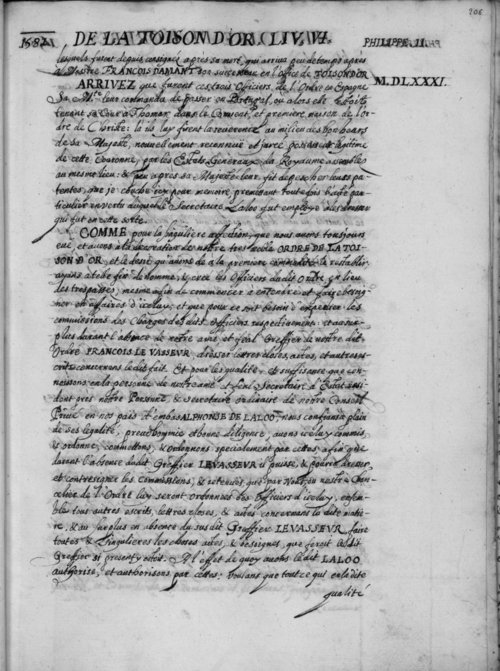 206
1581. DE LA TOISON D'OR. LIV. VI. PHILIPPE. II.
furent depuis consignés apres sa mort, qui arriva peu de temps apres
FRANCOIS DAMANT son successeur en l'office de TOISON D'OR
ARRIVEZ que furent ces trois Officiers de l'Ordre en Espagne M.DLXXXI.
Sa Mté. leur commanda de passer en Portugal, ou alors elle estoit
tenant sa Cour a Thomar dans le Convent, et premiere maison de l'or-
dre de Christ: la ils luy firent la reverence au milieu des honneurs
de sa Majesté, nouvellement reconnuë et jurée legitime
de cette Couronne, par les Estats Generaux du Royaume assemblés
au mesme lieu: & peu apres sa Majesté leur fit depescher leurs pa-
tentes, que je couche icy pour memoire prenant toutefois
ticulier en vertu duquel le Secretaire Laloo fut employé a les dresser
qui fut en cette sorte.
COMME pour la singuliere affection, que nous avons tousjours
euë, et avons a l'honneur de nostre tres noble ORDRE DE LA TOI-
SON D'OR, et le desir qu'avons de a la premiere commodité le restablir
ayans a cette fin denommé, & creé les Officiers dudit Ordre en lieu
des trespassés, mesme afin de commencer a entendre et faire besoig-
ner es affaires d'iceluy, et que pour ce soit besoin d'expedier les
commissions des Charges desdits Officiers respectivement: et au sur-
plus durant l'absence de notre amé et feal Greffier de nostre dit
Ordre FRANCOIS LE VASSEUR, dresser lettres closes, actes, et autres es-
crits concernans ledit fait. Et pour les qualités, et suffisance que con-
noissons en la personne de nostre amé et feal Secretaire d'Estat resi-
dent prés nostre Personne, & Secretaire ordinaire de nostre Conseil
Privé en nos pais d'embas ALPHONSE DE LALOO, nous confians a plain
de ses legalité, preudhommie et bonne diligence, avons iceluy commis,
& ordonné, commettons, & ordonnons specialement par cettes, afin que
durant l'absence dudit Greffier LE VASSEUR il puisse, & pourra dresser,
et contresigner les Commissions, & retenuës que par Nous, ou nostre Chan-
celier de l'Ordre luy seront ordonnées des Officiers d'iceluy, ensem-
bles tous autres escrits, lettres closes, & actes concernans ladite matie-
re, & au surplus en absence du susdit Greffier LE VASSEUR, faire
toutes & singulieres les choses, actes, & besoignes, que feroit ledit
Greffier si present y estoit. A l'effet de quoy avons ledit LALOO
authorisé, et authorisons par cettes: voulans que tout ce qui en ladite
qualité